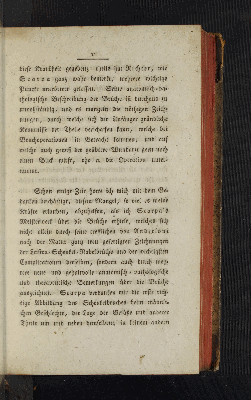 IV
diese Krankheit gegeben; theils hat Richter, wie
Scarpa ganz wahr bemerkt, mehrere wichtige
Punkte unerörtert gelassen. Seine anatomisch-pa-
thologische Beschreibung der Brüche ist durchaus zu
unvollständig, und es mangeln die nöthigen Zeich-
nungen, durch welche sich der Anfänger gründliche
Kenntnisse der Theile verschaffen kann, welche bei
Bruchoperationen in Betracht kommen, und auf
welche auch gewiß der geübtere Wundarzt gern noch
einen Blick wirft, ehe er die Operation unter-
nimmt.
Schon einige Zeit hatte ich mich mit dem Ge-
danken beschäftigt, diesem Mangel, so viel es meine
Kräfte erlaubten, abzuhelfen, als ich Scarpa's
Meisterwerk über die Brüche erhielt, welches sich
nicht allein durch seine trefflichen von Anderloni
nach der Natur ganz treu gefertigten Zeichnungen
der Leisten- Schenkel- Nabelbrüche und der wichtigsten
Complicationen derselben, sondern auch durch meh-
rere neue und gehaltvolle anatomisch-pathologische
und therapeutische Bemerkungen über die Brüche
auszeichnet. Scarpa verdanken wir die erste rich-
tige Abbildung des Schenkelbruches beim männli-
chen Geschlechte, die Lage der Gefäße und anderer
Theile um und neben demselben; in seinem andern